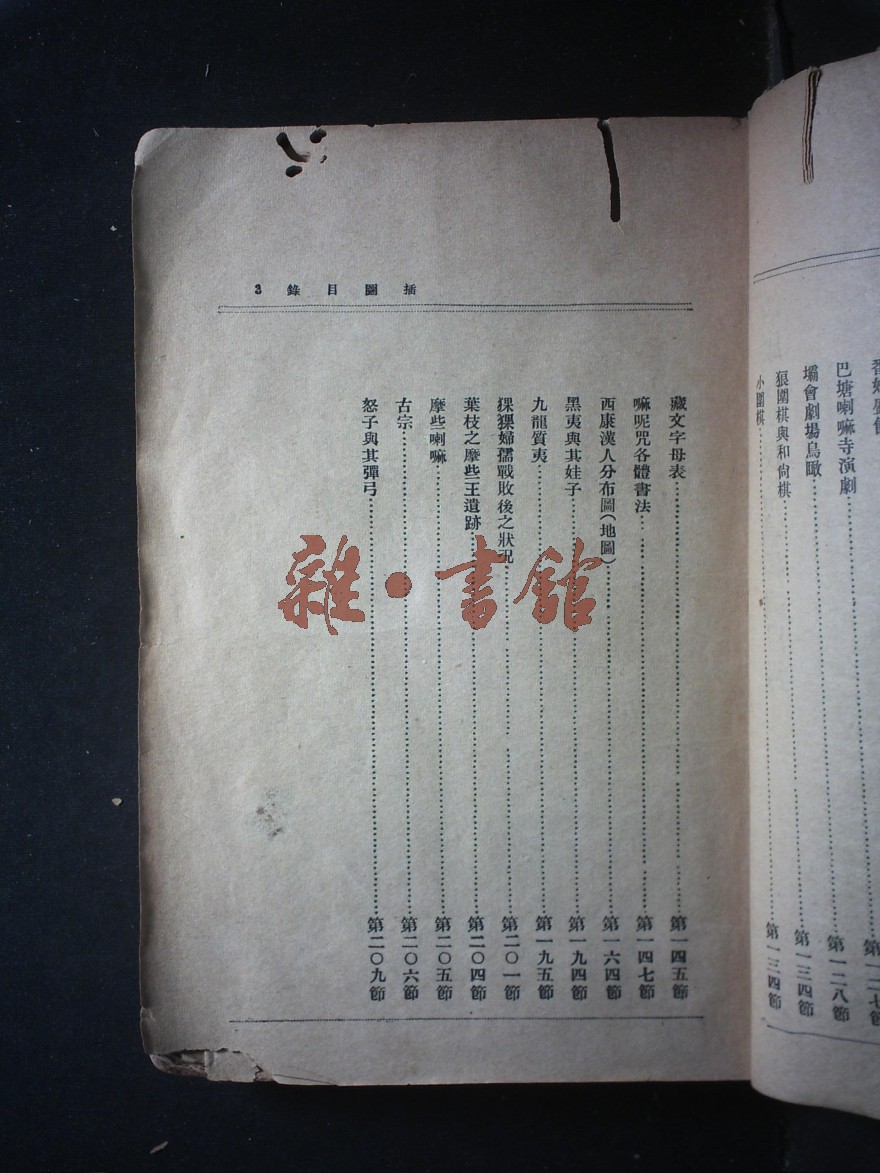 巴塘喇嘛寺演劇……第一二七節
壩會劇場鳥瞰……第一二八節
狼圍棋與和尙棋……第一三四節
小圍棋……第一三四節
插圖目錄 3
藏文字母表……第一四五節
嘛呢咒各體書法……第一四七節
西康漢人分布圖(地圖)……第一六四節
黑夷與其娃子……第一九四節
九龍質夷……第一九五節
猓猓婦孺戰敗後之狀況……第二〇一節
葉枝之摩些王遺跡……第二〇四節
摩些喇嘛……第二〇五節
古宗……第二〇六節
怒子與其彈弓……第二〇九節
雜·書館